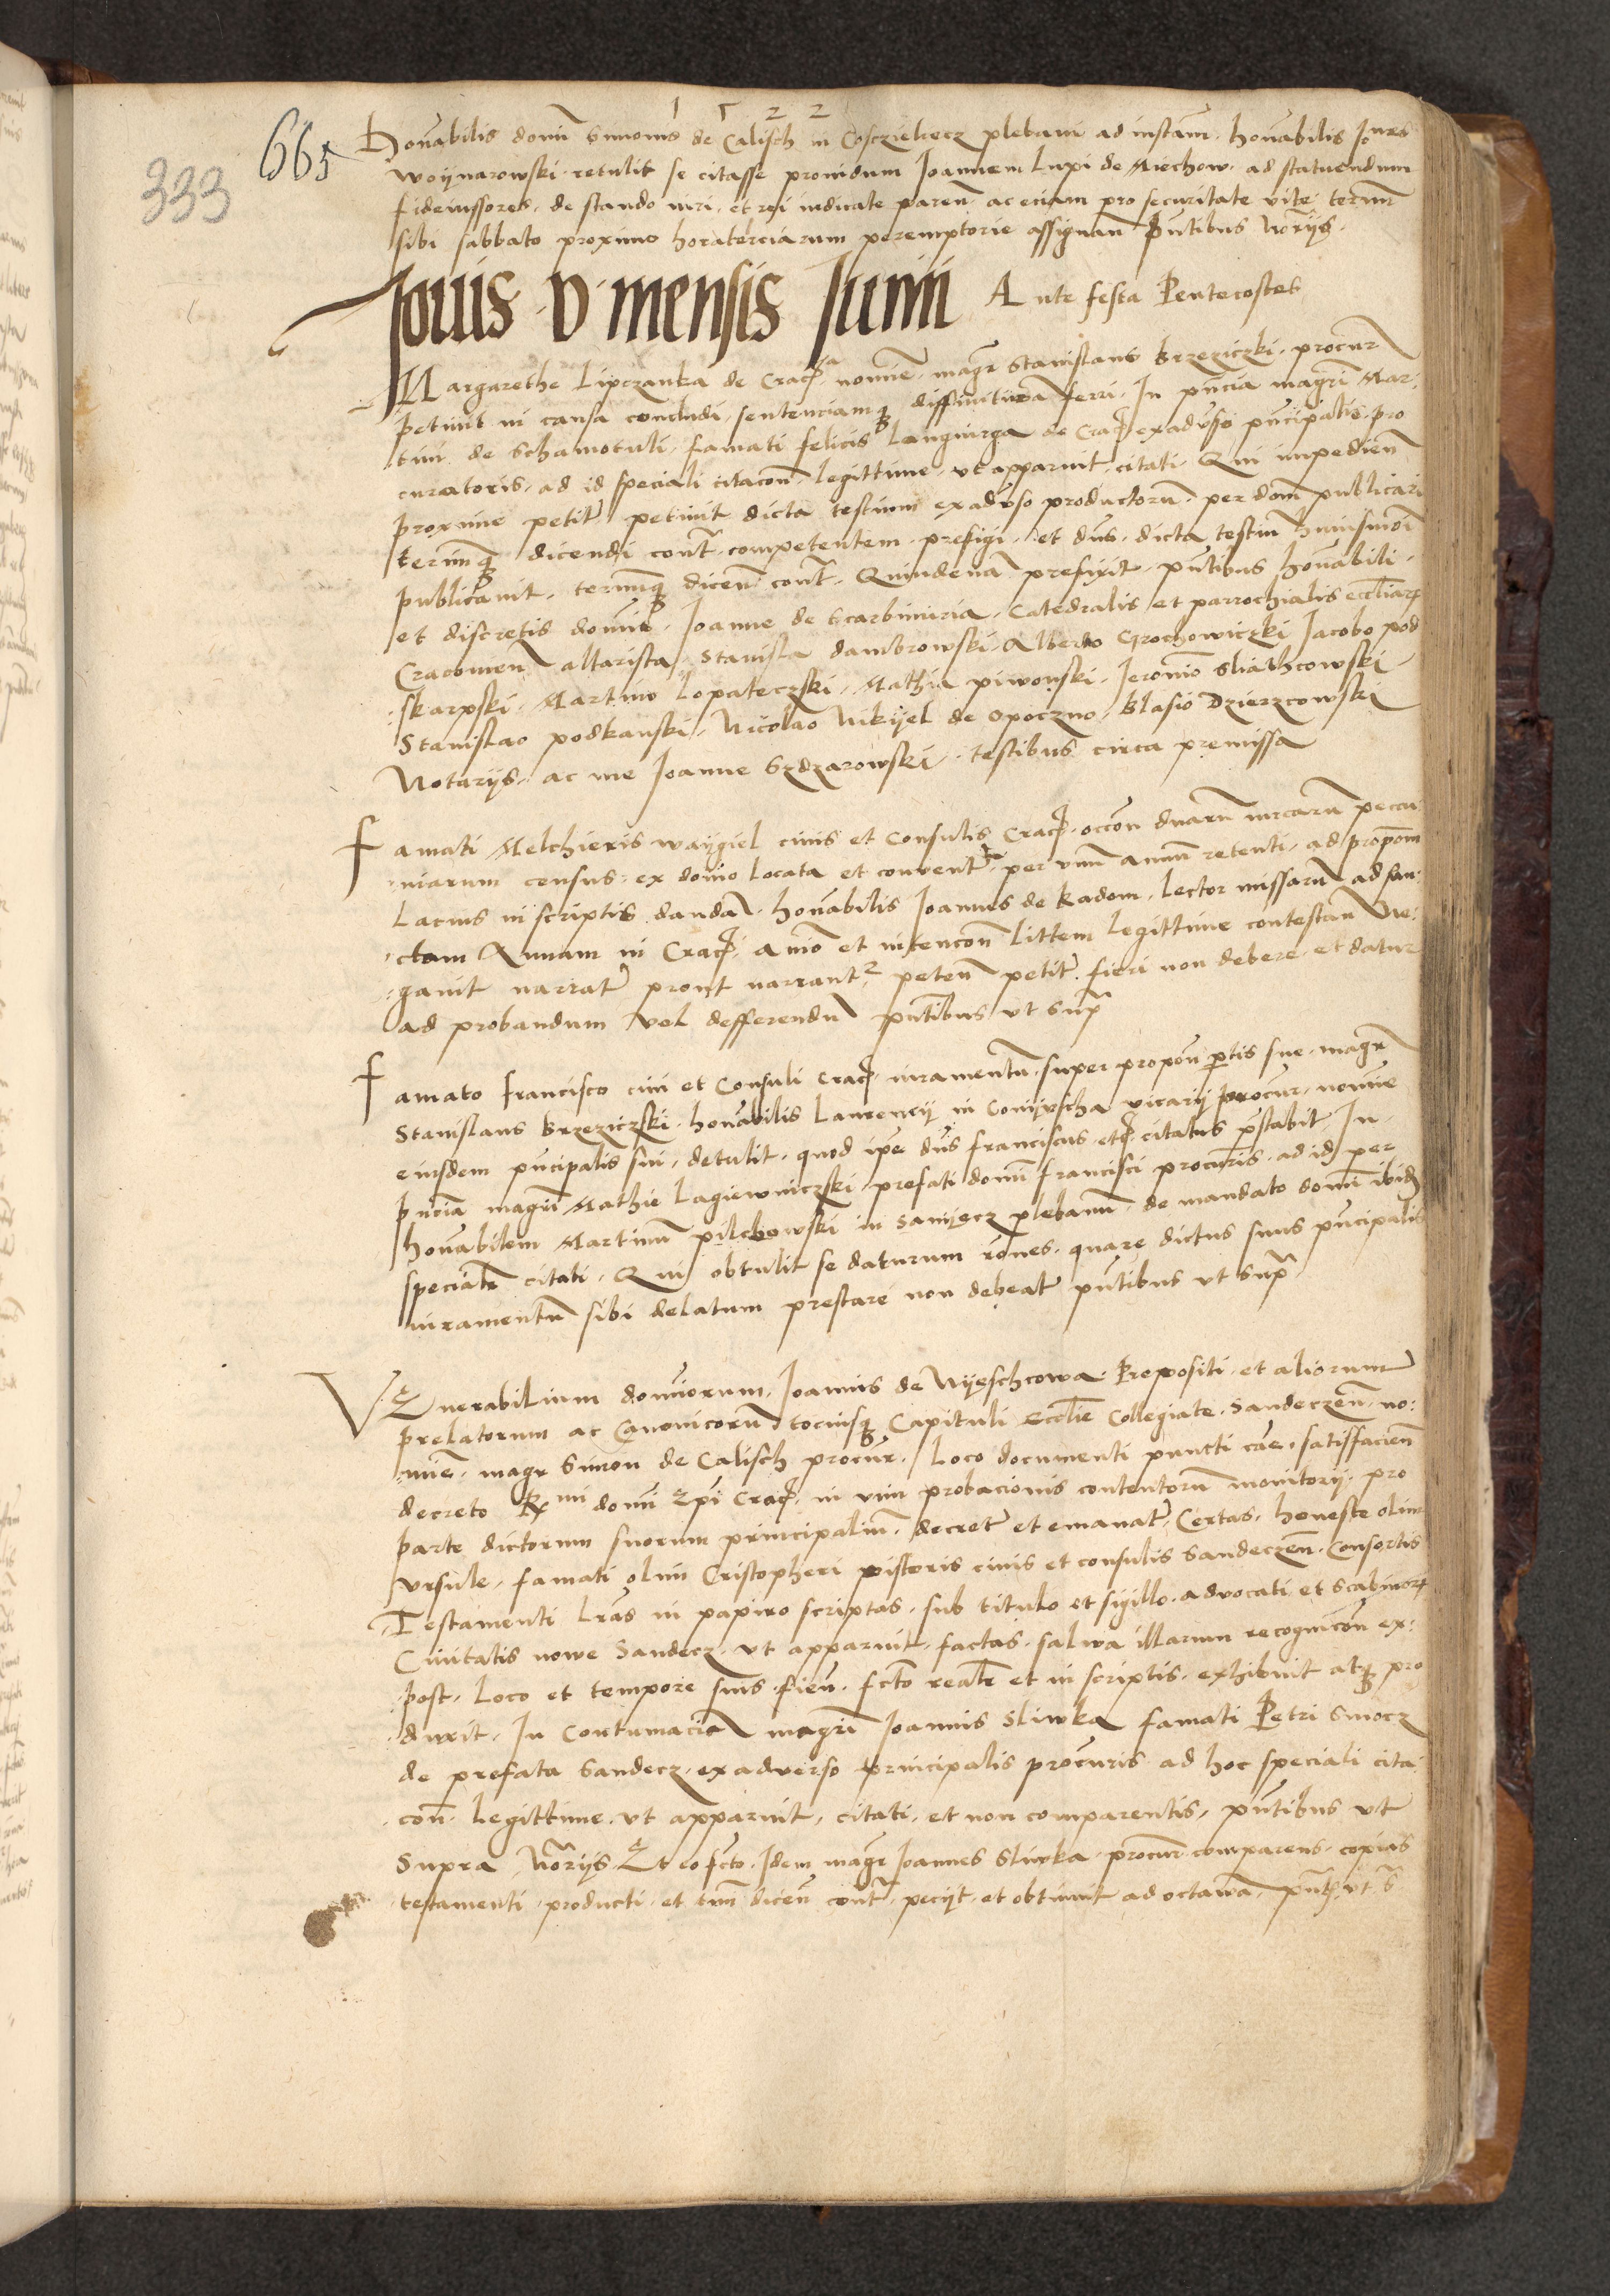 1522
333
665
Honabilis domi Simonis de Calisch in Cosczielecz plebani ad instam honabilis Jones
Woijnarowski retulit se citasse prouidum Joannem Lupi de Miechow ad statuendum
fideiussores de stando iuri et rei iudicate paren ac eciam pro securitate vite termn
sibi sabbato proximo hora terciarum peremptorie assignan pntibus Norijs
Jouis v mensis Junii Ante festa Pentecostes
Margarethe Lipczanka de Crac nomine magr Stanislaus Brzeziczki procur
petiuit in causa concludi sentenciamq diffinitiuā ferri In pncia magri Mar
tini de Schamotuli famati felicis Languirga de Crac exaduso pncipalis pro
curatoris ad id speciali citacon legittime vt apparuit citati Qui impedien
proxime petitr petiuit dicta testium exaduso productoru per dom publicari
terimq dicendi contr competentem prefigi et dns dicta testiu huiusmoi
publicauit terimq dicen contr Quindenā prefixit pntibus honabili
et discretis domis Joanne de Scarbimiria Catedralis et parrochialis eccliar
Cracouien altarista Stanisla dambrowski Alberto Grochowiczki Jacobo pod
skarpski Martino Lopateczski Mathia piwonski Jeronimo Sliathcowski
Stanislao podkanski Nicolao Nikijel de Opoczno Blasio Dzierzcowski
Notarijs ac me Joanne Sędzarowski testibus circa premissa
Famati Melchieris waijgiel ciuis et Consulis Crac occon duaru mrcaru peccu
niarum census ex domo locata et conuentr per vnu annu retenti ad propom
Lacius in scriptis dandā honabilis Joannes de Radom lector missaru ad san
ctam Annam in Crac animo et intencon littem legittime contestan Ne
gauit narrata prout narrantr peten petitr fieri non debere et datur
ad probandum vel defferendu pntibus vt supra
Famato Francisco ciui et Consuli Crac iuramentu super propon ptis sue magr
Stanislaus Brzeziczski honabilis Laurencij in Conijuscha vicarij procur nomine
eiusdem pncipalis sui detulit quod ipe dns franciscus etc citatus pstabit In
pncia magri Mathie Lagiewniczski prefati domi francisci procuris ad id per
honabilem Martinu pilchowski in Sanijecz plebanu de mandato domi ibid
specialr citati Qui obtulit se daturum rones quare dictus suus pncipalis
iuramentu sibi delatum prestare non debeat pntibus vt supra
Venerabilium dominorum Joannis de Nijeschcowa Prepositi et aliorum
prelatorum ac Canonicoru tociusq Capituli Ecclie Collegiate Sandeczen no
mine magr Simon de Calisch procur Loco documenti puncti cae satisfacien
decreto Rmi domi Epi Crac in vim probacionis contentoru monitorij pro
parte dictorum suorum principaliu decretr et emanatr Certas honeste olim
vrsule famati olim Cristopheri pistoris ciuis et consulis Sandeczen Consortis
Testamenti lras in papiro scriptas sub titulo et sigillo aduocati et Scabinor
Ciuitatis nowe Sandecz vt apparuit factas salwa illarum recognicon ex
post loco et tempore suis fien fcto realr et in scriptis exhibuit atq pro
duxit In Contumaciā magri Joannis Sliwka famati Petri Smocz
de prefata Sandecz exaduerso principalis procuris ad hoc speciali cita
con legittime vt apparuit citati et non comparentis pntibus vt
supra Norijs Et eo fcto Idem magr Joannes Sliwka procur comparens copias
testamenti producti et tmi dicen contr pecijt et obtinuit ad octauā pntib vt S